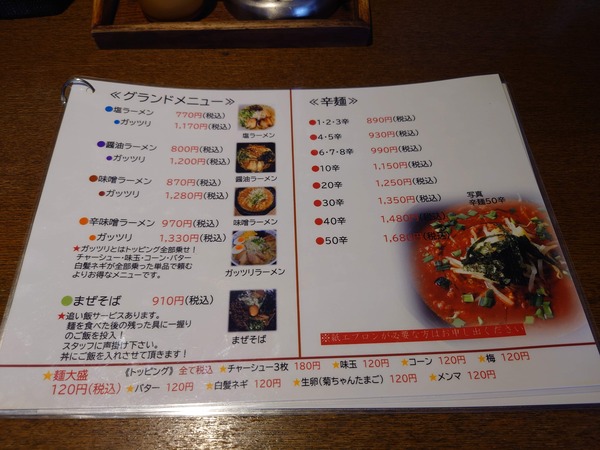 ≪グランドメニュー≫
●塩ラーメン 770円(税込)
●ガッツリ 1,170円(税込)
塩ラーメン
●醤油ラーメン 800円(税込)
●ガッツリ 1,200円(税込)
醤油ラーメン
●味噌ラーメン 870円(税込)
●ガッツリ 1,280円(税込)
味噌ラーメン
●辛味噌ラーメン 970円(税込)
●ガッツリ 1,330円(税込)
★ガッツリとはトッピング全部乗せ!
チャーシュー・味玉・コーン・バター
白髪ネギが全部乗った単品で頼む
よりお得なメニューです。
ガッツリラーメン
●まぜそば 910円(税込)
★追い飯サービスあります。
麺を食べた後の残った具に一握り
のご飯を投入!
スタッフに声掛け下さい。
丼にご飯を入れさせて頂きます!
まぜそば
≪辛麺≫
●1・2・3辛 890円(税込)
●4・5辛 930円(税込)
●6・7・8辛 990円(税込)
●10辛 1,150円(税込)
●20辛 1,250円(税込)
●30辛 1,350円(税込)
●40辛 1,480円(税込)
●50辛 1,680円(税込)
写真
辛麺50辛
※紙エプロンが必要な方はお申し出ください
★麺大盛
120円(税込)
《トッピング》 全て税込 ★チャーシュー3枚 180円 ★味玉 120円 ★コーン 120円 ★梅 120円
★バター 120円 ★白髪ネギ 120円 ★生卵(菊ちゃんたまご) 120円 ★メンマ 120円